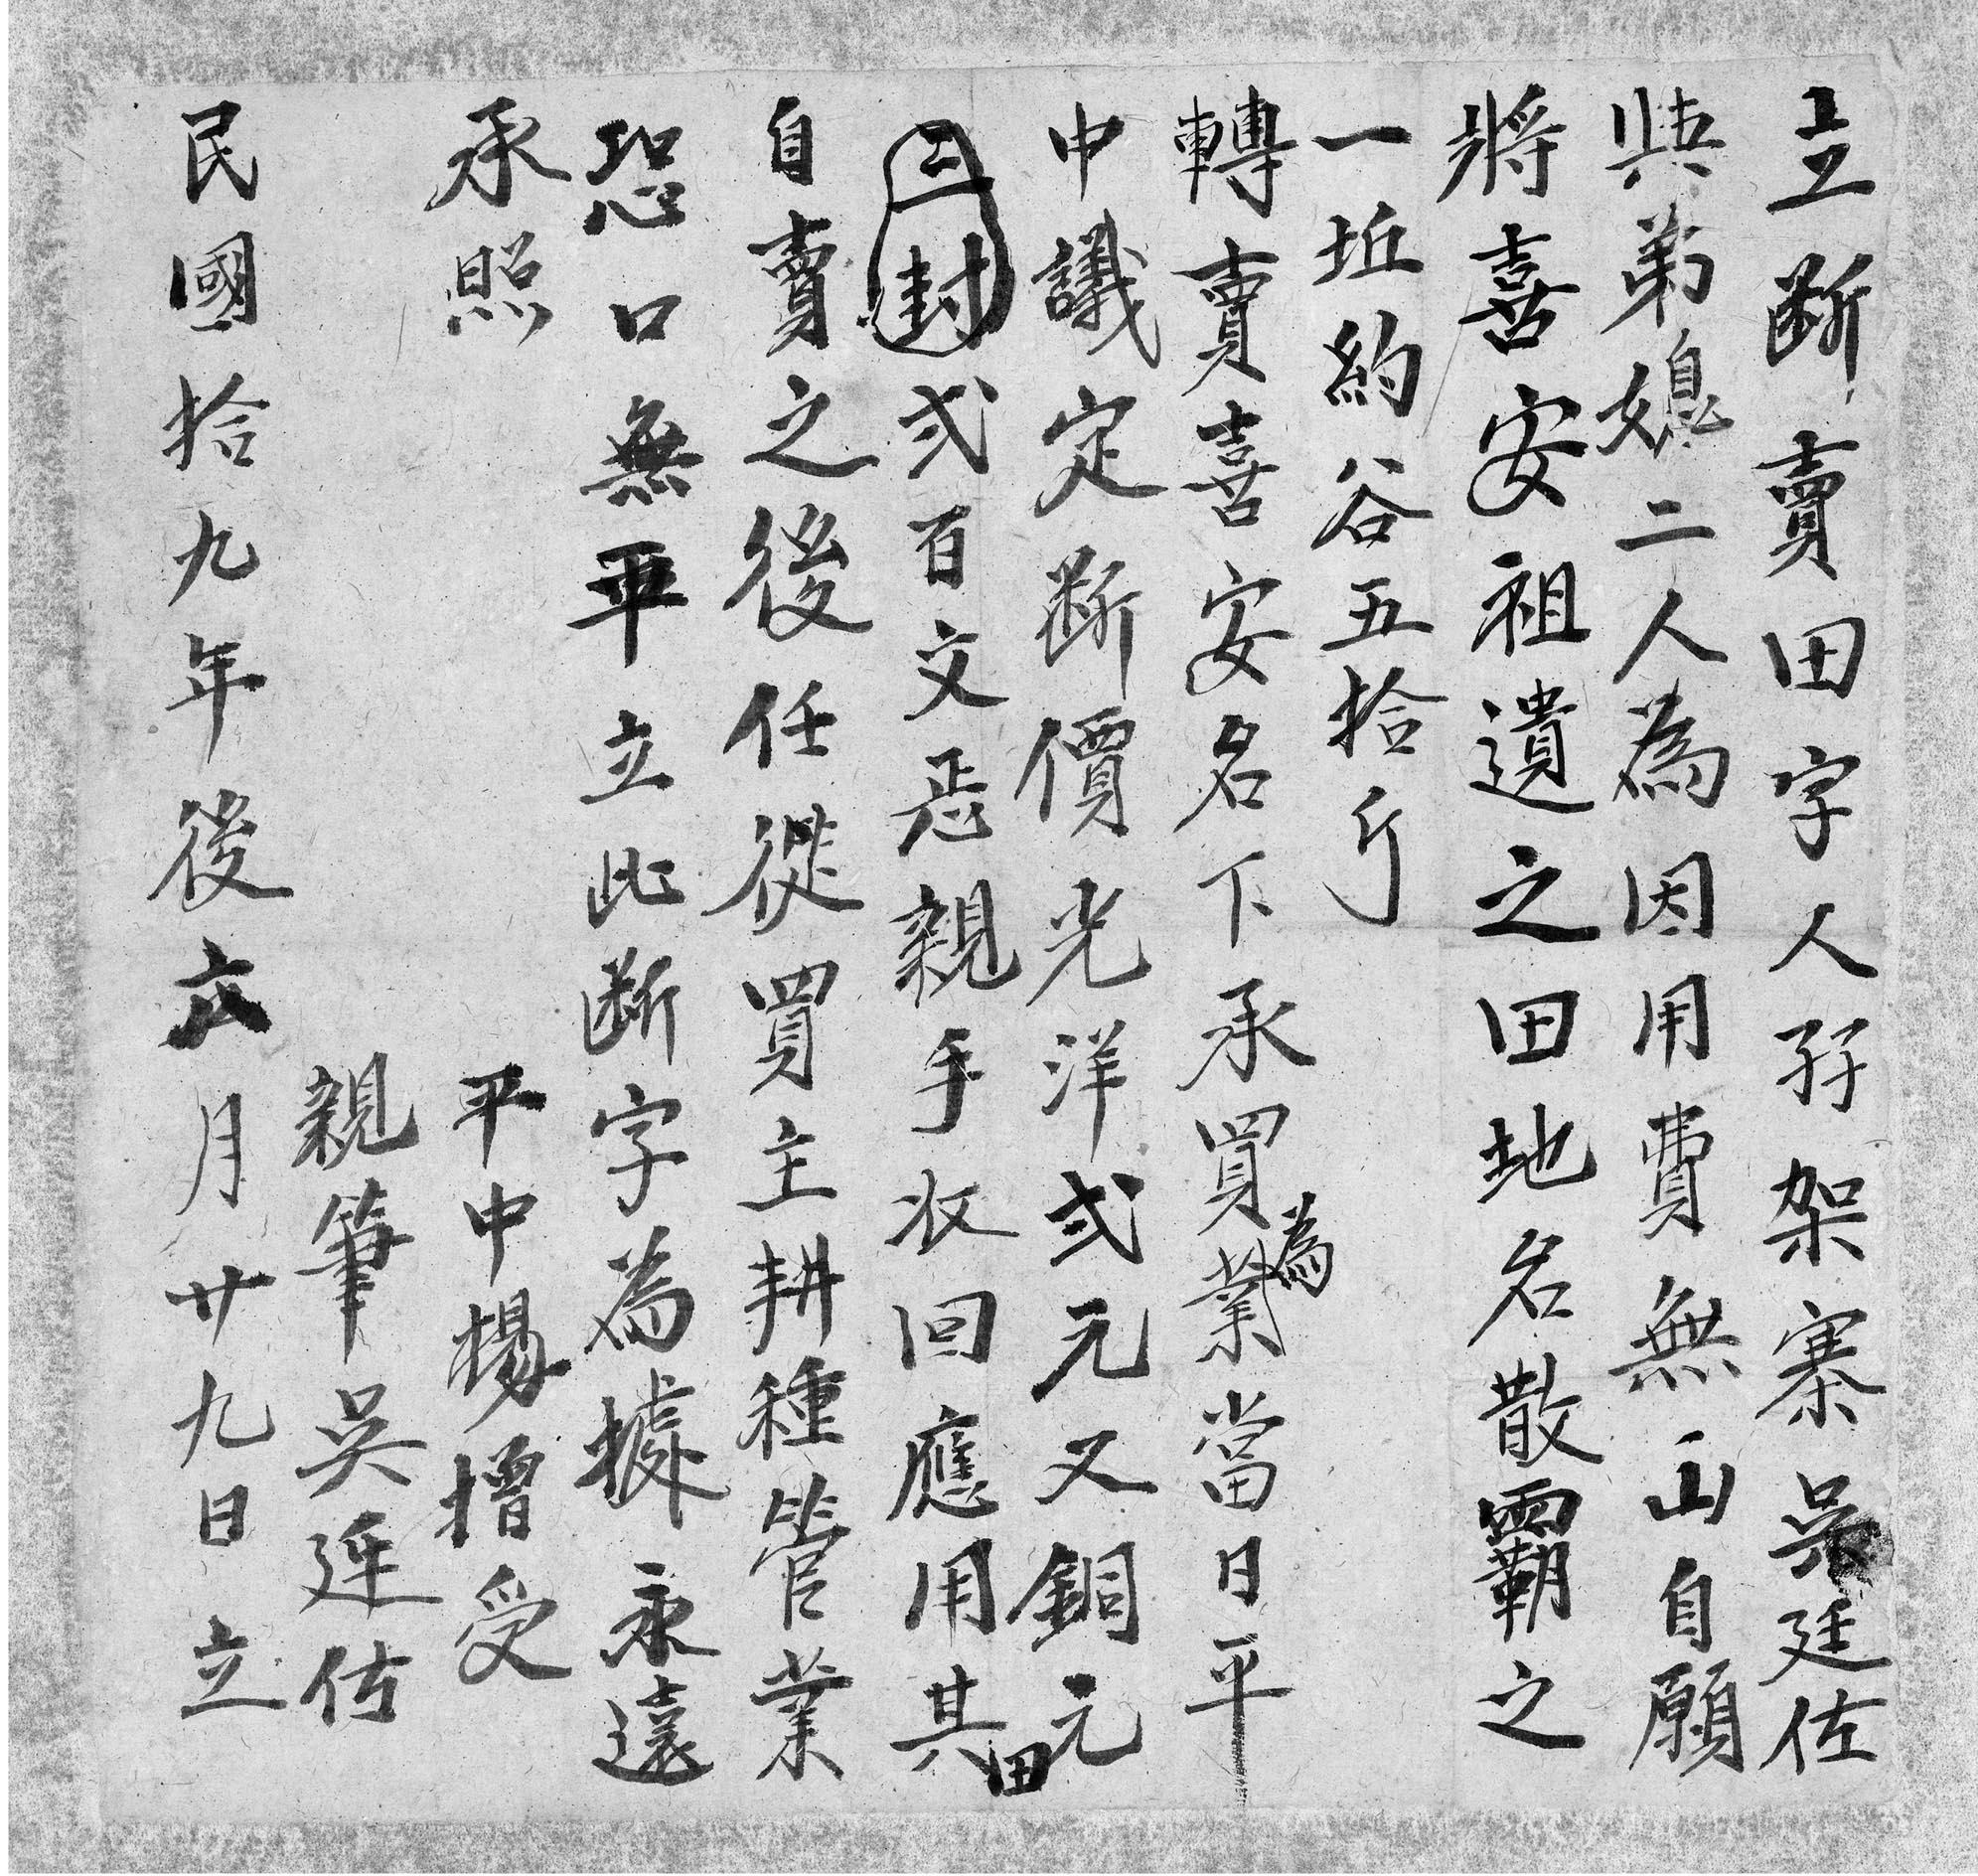 立断賣田字人孖架寨吴廷佐
與弟媳二人為因用費無出自願
將喜安祖遺之田地名散霸之
一坵約谷五拾斤
轉賣喜安名下承買為業當日平
中議定断價光洋弍元又銅元
三封弍百文恁親手收回應用其田
自賣之後任從買主耕種管業
恐口無平立此断字為據永遠
承照
平中楊增受
親筆吳廷佐
民國拾九年後六月廿九日立